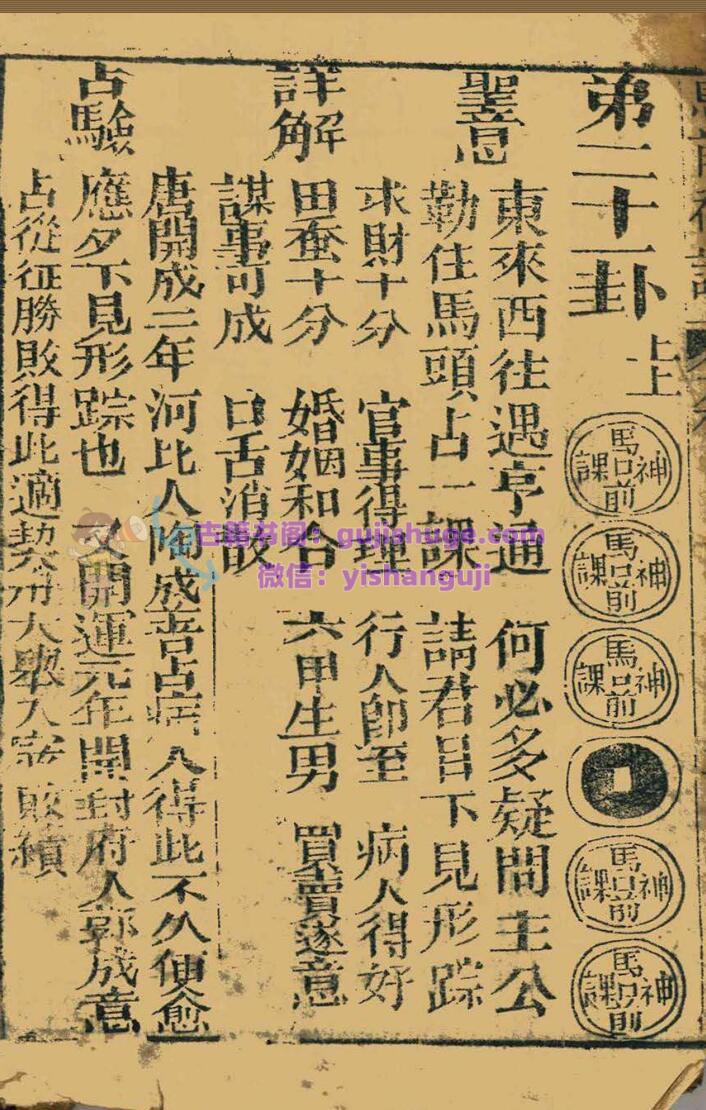 第二十一卦 上上
馬口前神課
馬口前神課
馬口前神課
馬口前神課
馬口前神課
聖意
東來西往遇亨通 何必多疑問主公
勒住馬頭占一課 請君目下見形踪
詳解
求財十分 官事得理 行人卽至 病人得好
田蚕十分 婚姻和合 六甲生男 買賣遂意
謀事可成 口舌消散
占驗
唐開成二年河比人陶成晉占病人得此不久便愈
應夕下見形踪也 又開運元年開封府人郭成意
占從征勝敗得此適契丹大舉入寇敗績
古籍书阁：gujishuge.com
微信：yishanguji